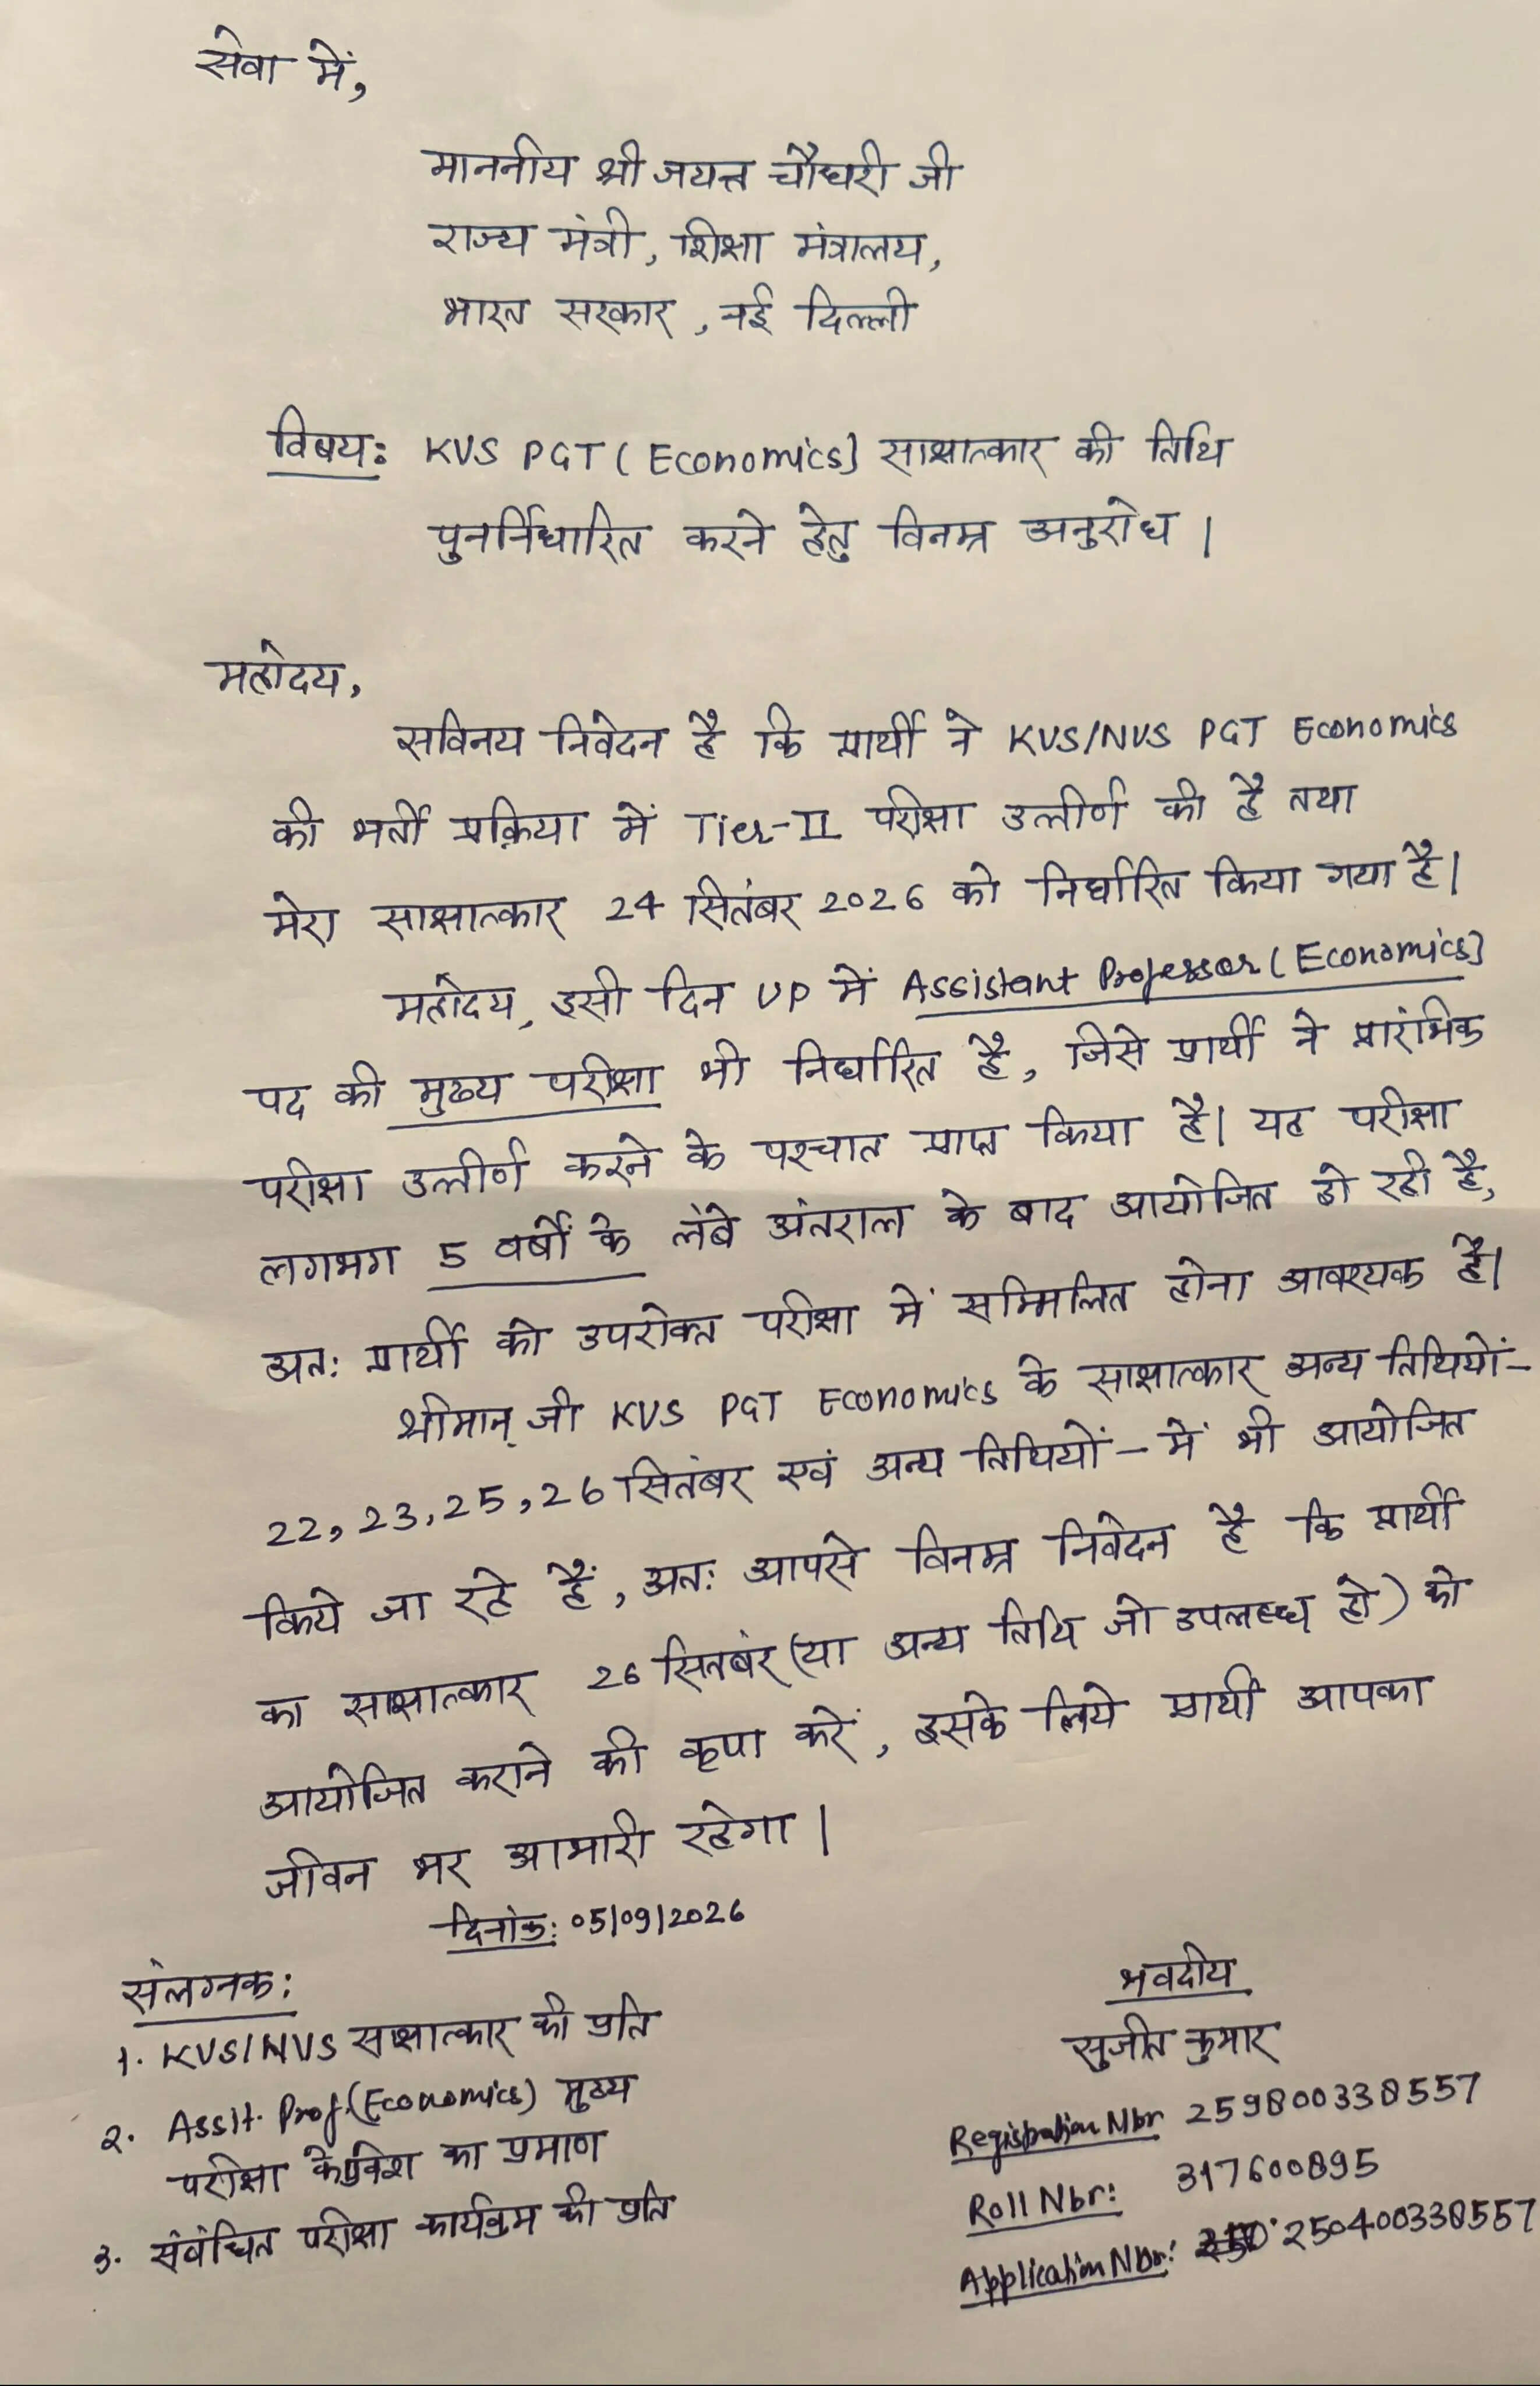 सेवा में,
माननीय श्री जयन्त चौधरी जी
राज्य मंत्री, शिक्षा मंत्रालय,
भारत सरकार, नई दिल्ली
विषय: KVS PGT (Economics) साक्षात्कार की तिथि
पुनर्निर्धारित करने हेतु विनम्र अनुरोध।
महोदय,
सविनय निवेदन है कि प्रार्थी ने KVS/NVS PGT Economics
की भर्ती प्रक्रिया में Tier-II परीक्षा उत्तीर्ण की है तथा
मेरा साक्षात्कार 24 सितंबर 2026 को निर्धारित किया गया है।
महोदय, इसी दिन UP में Assistant Professor (Economics)
पद की मुख्य परीक्षा भी निर्धारित है, जिसे प्रार्थी ने प्रारंभिक
परीक्षा उत्तीर्ण करने के पश्चात प्राप्त किया है। यह परीक्षा
लगभग 5 वर्षों के लंबे अंतराल के बाद आयोजित हो रही है,
अत: प्रार्थी को उपरोक्त परीक्षा में सम्मिलित होना आवश्यक है।
श्रीमान् जी KVS PGT Economics के साक्षात्कार अन्य तिथियों-
22, 23, 25, 26 सितंबर एवं अन्य तिथियों - में भी आयोजित
किये जा रहे हैं, अत: आपसे विनम्र निवेदन है कि प्रार्थी
का साक्षात्कार 26 सितबंर (या अन्य तिथि जो उपलब्ध हो) को
आयोजित कराने की कृपा करें, इसके लिये प्रार्थी आपका
जीवन भर आभारी रहेगा।
दिनांक: 05/09/2026
संलग्नक:
1. KVS/NVS साक्षात्कार की प्रति
2. Assit. Prof. (Economics) मुख्य
परीक्षा के प्रवेश का प्रमाण
3. संबंधित परीक्षा कार्यक्रम की प्रति
भवदीय
सुजीत कुमार
Registration Nbr 259800338557
Roll Nbr: 317600895
Application Nbr: 250400338557